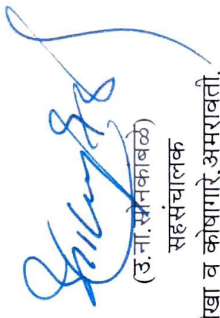 (उ.ना.सोनकांबळे)
सहसंचालक
लेखा व कोषागारे, अमरावती.